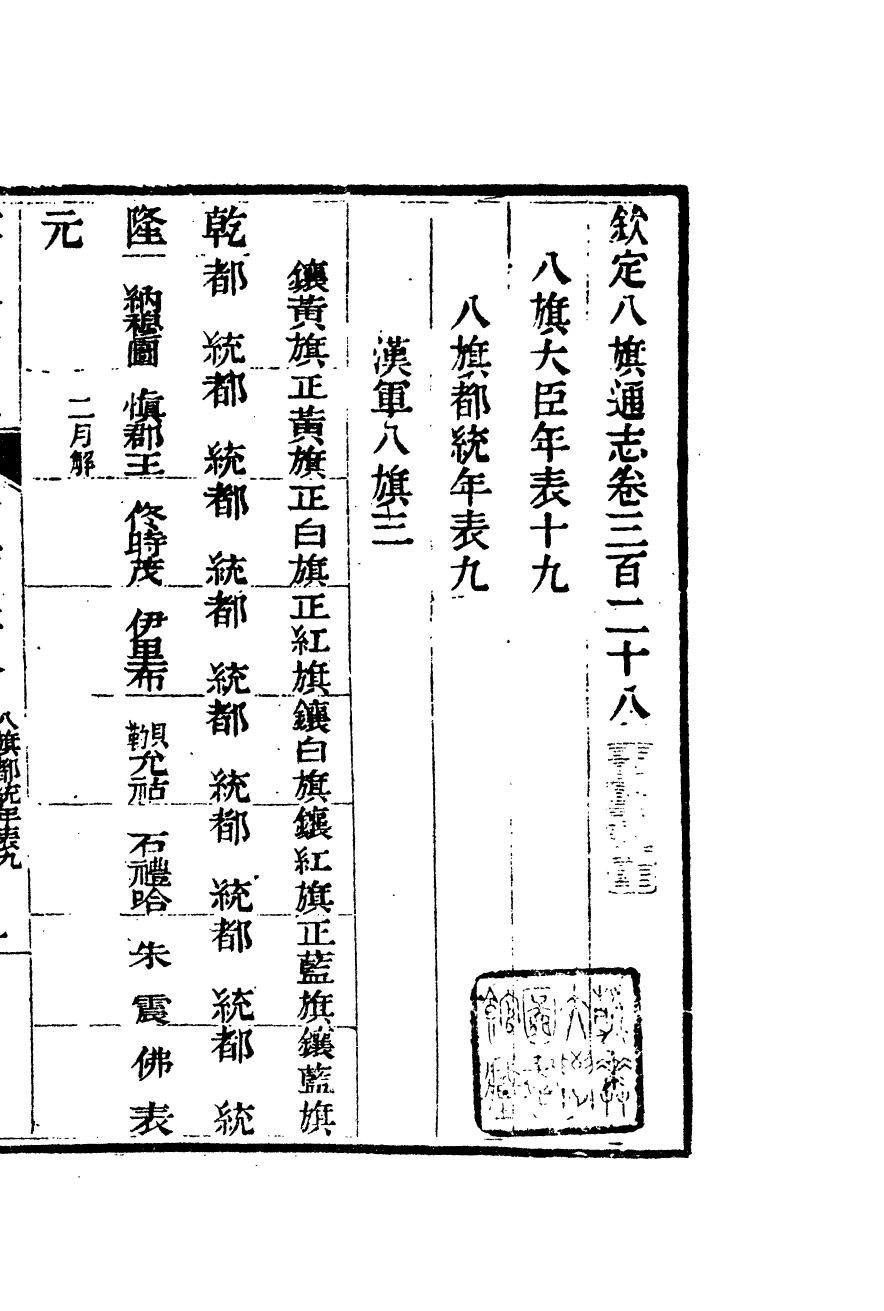 欽定八旗通志卷三百二十八
八旗大臣年表十九
八旗都統年表九
漢軍八旗三
鑲黃旗正黃旗正白旗正紅旗鑲白旗鑲紅旗正藍旗鑲藍旗
乾都統都統都統都統都統都統都統都統
隆納穆圖慎郡王佟時茂伊里布貝勒允祜石禮哈朱震佛表
元二月解
八旗都統年表九